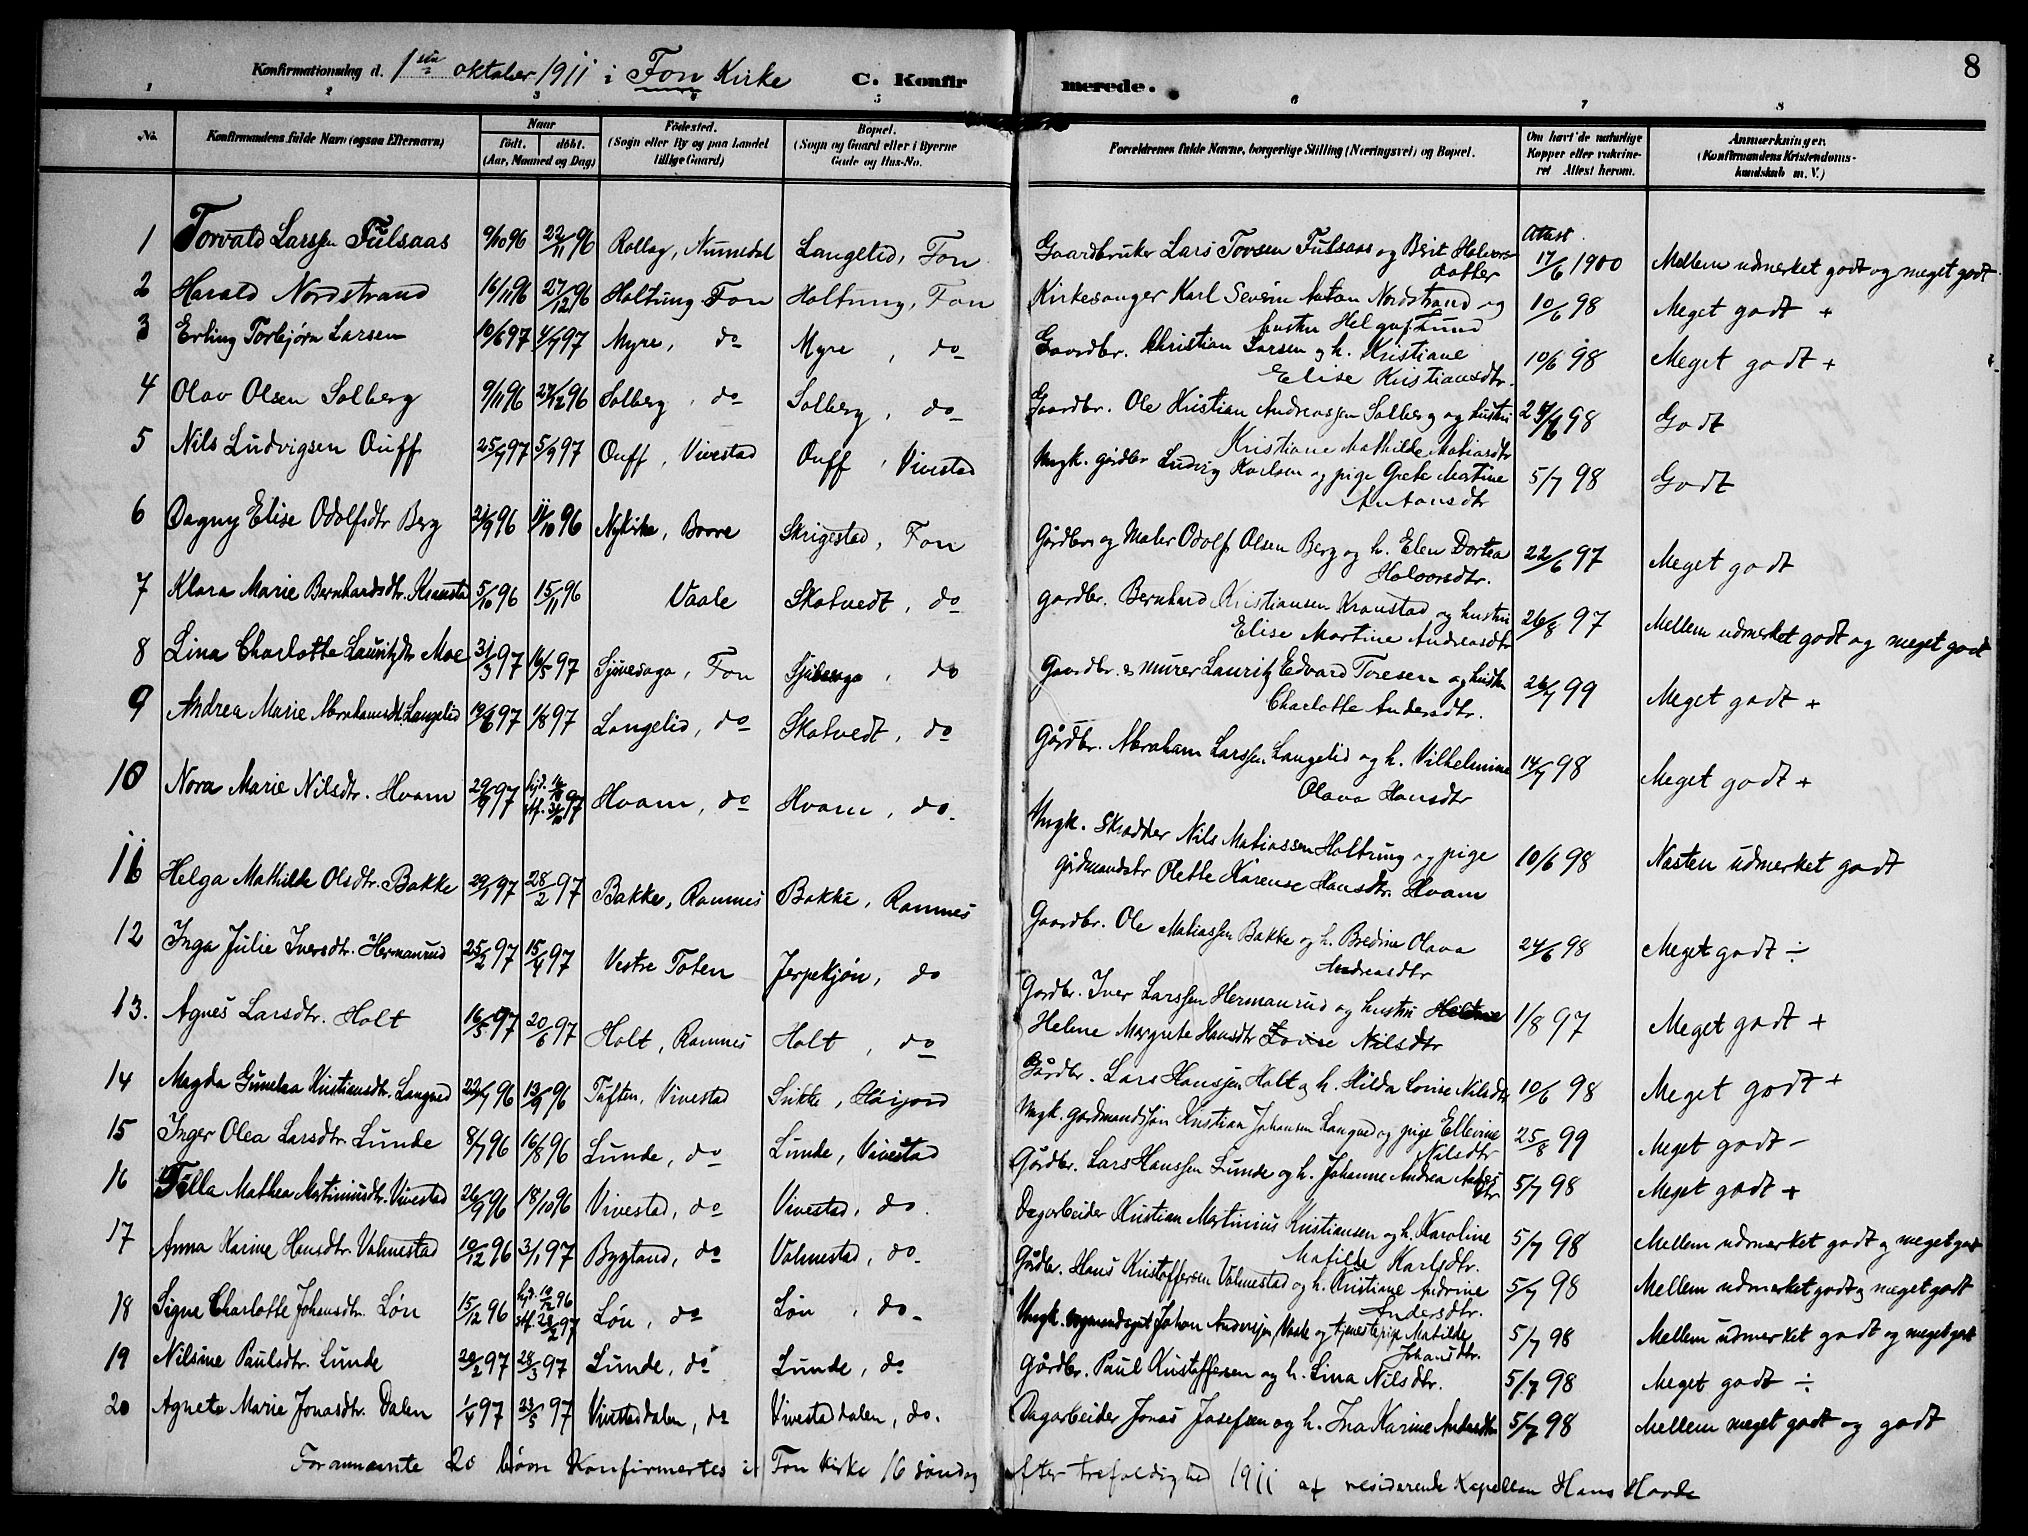 8
Konfirmationsdag d. 1ste oktober 1911 i Fon Kirke C. Konfir merede.
1 2 3 4 5 6 7 8
No. Konfirmandens fulde Navn (ogsaa Efternavn) Naar født. døbt. (Aar, Maaned og Dag) Fødested. (Sogn eller By og paa Landet tillige Gaard) Bopæl. (Sogn og Gaard eller i Byerne Gade og Hus-No. Forældrenes fulde Navne, borgerlige Stilling (Næringsvei) og Bopæl. Om havt de naturlige Kopper eller vakcineret Attest herom. Anmærkninger. (Konfirmandens Kristendomskundskab m. V.)
1 Torvald Larssen Fulsaas 9/10 96 22/11 96 Rollag, Numedal Langelid, Fon Gaardbruker Lars Tovsen Fulsaas og Berit Halvors- Attest 17/6 1900 Mellem udmerket godt og meget godt
datter
2 Harald Nordstrand 16/11 96 27/12 96 Holtung Fon Holtung, Fon Kirkesanger Karl Severin Anton Nordstrand og 10/6 98 Meget godt +
hustru Helga Lund
3 Erling Torbjørn Larsen 10/6 97 4/7 97 Myre, do Myre, do Gaardbr. Christian Larsen og h. Kristiane 10/6 98 Meget godt +
Elise Kristiansdtr.
4 Olav Olsen Solberg 9/11 96 27/12 96 Solberg, do Solberg, do Gaardbr. Ole Kristian Andreassen Solberg og hustru 24/6 98 Godt
Kristiane Mathilde Matiasdtr
5 Nils Ludvigsen Ouff 25/7 97 5/9 97 Ouff, Vivestad Ouff, Vivestad Ungk. gårdbr Ludvig Karlsen og pige Grete Martine 5/7 98 Godt
Antonsdtr
6 Dagny Elise Odolfsdtr Berg 21/9 96 11/10 96 Nykirke, Borre Skrigestad, Fon Gårdbr og Maler Odolf Olsen Berg og h. Elen Dortea 22/6 97 Meget godt
Halvorsdtr.
7 Klara Marie Bernhardsdtr. Kranstad 5/10 96 15/11 96 Vaale Skatvedt, do gardbr. Bernhard Kristiansen Kranstad og hustru 26/8 97 Mellem udmerket godt og meget godt
Elise Martine Andreasdtr
8 Lina Charlotte Lauritzdtr Moe 31/3 97 16/5 97 Sjuvesaga, Fon do Gaardbr. & murer Lauritz Edvard Toresen og hustru 26/7 99 Meget godt +
Charlotte Andersdtr.
9 Andrea Marie Abrahamsdtr. Langelid 19/6 97 1/8 97 Langelid, do Skatvedt, do Gårdbr. Abraham Larssen Langelid og h. Vilhelmine 14/7 98 Meget godt +
Olava Hansdtr
10 Nora Marie Nilsdtr. Hvam 29/9 97 hjd. stf. 31/10 97 Hvam, do Hvam, do. Ungk. Skrædder Nils Matiassen Holtung og pige 10/6 98 Næsten udmerket godt
gårdmandsdtr Olette Karense Hansdtr. Hvam
11 Helga Mathilde Olsdtr. Bakke 29/1 97 28/2 97 Bakke, Ramnes Bakke, Ramnes Gaardbr. Ole Matiassen Bakke og h. Bredine Olava 24/6 98 Meget godt ÷
Andreasdtr
12 Inga Julie Iversdtr. Hermanrud 25/2 97 15/4 97 Vestre Toten Jerpekjøn, do Gardbr. Iver Larssen Hermanrud og hustru 1/8 97 Meget godt +
Helene Margrete Hansdtr Lovise Nilsdtr
13. Agnes Larsdtr. Holt 16/5 97 20/6 97 Holt, Ramnes Holt, do Gårdbr. Lars Hanssen Holt og h. Hilda Lovise Nilsdtr 10/6 98 Meget godt +
14 Magda Gunelea Kristiansdtr. Langved 22/7 96 13/9 96 Tuften, Vivestad Ungk. gardmandssøn Kristian Johansen Langved og pige Ellevine 25/8 99 Meget godt –
Nilsdtr
15 Inger Olea Larsdtr. Lunde 8/7 96 16/8 96 Lunde, do Lunde, Vivestad Gårdbr. Lars Hanssen Lunde og h. Johanne Andrea 5/7 98 Meget godt +
dtr
16 Tella Mathea Martiniusdtr. Vivestad 26/9 96 18/10 96 Vivestad, do Vivestad, do. Dagarbeider Kristian Martinius Kristiansen og h. Karoline 5/7 98 Mellem udmerket godt og meget godt
Matilde Karlsdtr.
17 Anna Karine Hansdtr. Valmestad 10/12 96 3/1 97 Bygland, do Valmestad, do. Gårdbr. Hans Kristoffersen Valmestad og h. Kristiane Andrine 5/7 98 Mellem udmerket godt og meget godt
Andersdtr.
18 Signe Charlotte Johansdtr. Løn 15/12 96 hjd. 16/12 96 stf. 28/2 97 Løn, do Løn, do Ungk. Johan Anderssen og tjenestepige Matilde 5/7 98 Mellem udmerket godt og meget godt
Johansdtr.
19 Nilsine Paulsdtr. Lunde 20/2 97 28/3 97 Lunde, do Lunde, do Gårdbr. Paul Kristoffersen og h. Lina Nilsdtr. 5/7 98 Meget godt ÷
20 Agnete Marie Jonasdtr. Dalen 1/4 97 23/5 97 Vivestaddalen, do Vivestaddalen, do. Dagarbeider Jonas Josefsen og h. Ina Karine Andersdtr 5/7 98 Mellem meget godt og godt
Forannævnte 20 børn Konfirmertes i Fon Kirke 16 søndag efter trefoldighed 1911 af residerende Kapellan Hans Horde